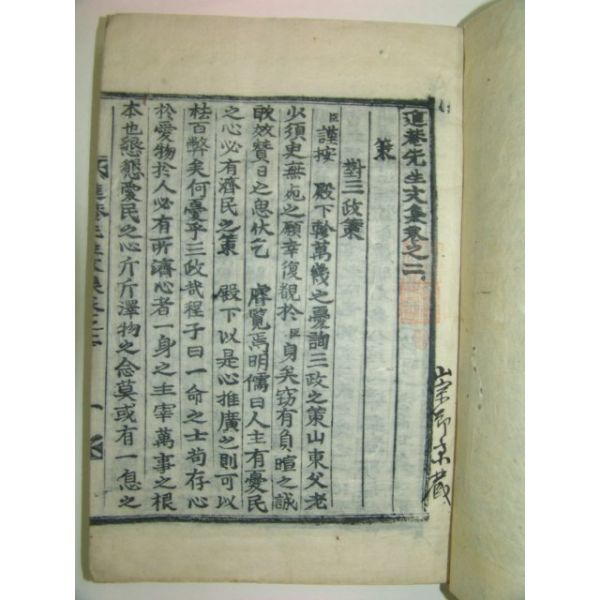 進菴先生文集卷之二
策
對三政策
臣謹按 殿下軫萬幾之憂詢三政之策山東父老
少須臾無死之願幸復覩於臣身矣窃有負暄之誠
敢效賛日之思伏乞 睿覽焉明儒曰人主有憂民
之心必有濟民之策 殿下以是心推廣之則可以
祛百弊矣何憂乎三政哉程子曰一命之士苟存心
於愛物於人必有所濟心者一身之主宰萬事之根
本也懇懇愛民之心斤斤澤物之念莫或有一息之